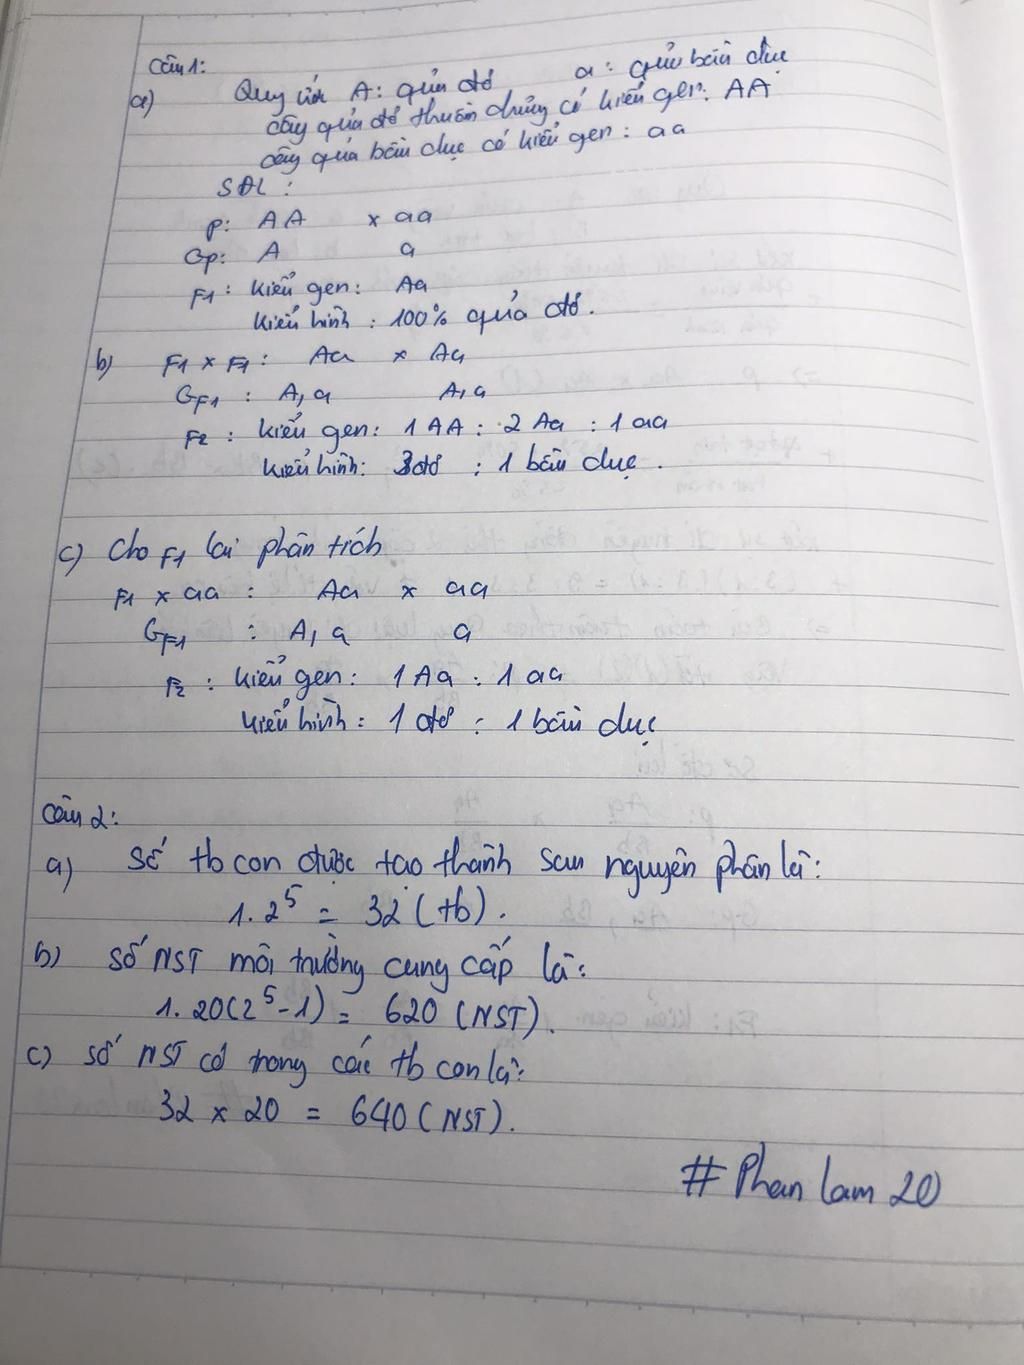 Câu 1:
a) Quy ước A: quả đỏ a: quả bầu dục
cây quả đỏ thuần chủng có kiểu gen: AA
cây quả bầu dục có kiểu gen: aa
SĐL:
P: AA x aa
Gp: A a
F1: kiểu gen: Aa
kiểu hình: 100% quả đỏ.
b) F1 x F1: Aa x Aa
GF1: A, a A, a
F2: kiểu gen: 1 AA : 2 Aa : 1 aa
kiểu hình: 3 đỏ : 1 bầu dục.
c) Cho F1 lai phân tích
F1 x aa: Aa x aa
GF1: A, a a
F2: kiểu gen: 1 Aa : 1 aa
kiểu hình: 1 đỏ : 1 bầu dục
Câu 2:
a) Số tb con được tạo thành sau nguyên phân là:
1.2^5 = 32 (tb).
b) Số NST môi trường cung cấp là:
1.20(2^5-1) = 620 (NST).
c) Số NST có trong các tb con là:
32 x 20 = 640 (NST).
# Phan lam 20